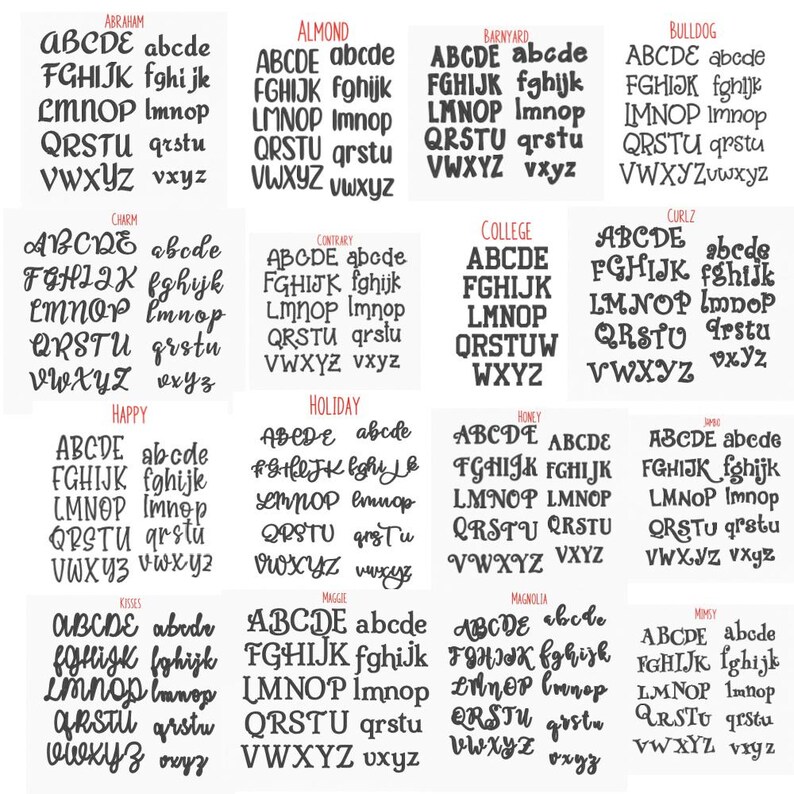 ABRAHAM
ABCDE abcde
FGHIJK fghijk
LMNOP lmnop
QRSTU qrstu
VWXYZ vxyz
ALMOND
ABCDE abcde
FGHIJK fghijk
LMNOP lmnop
QRSTU qrstu
VWXYZ vwxyz
BARNYARD
ABCDE abcde
FGHIJK fghijk
LMNOP lmnop
QRSTU qrstu
VWXYZ vxyz
BULLDOG
ABCDE abcde
FGHIJK fghijk
LMNOP lmnop
QRSTU qrstu
VWXYZ vwxyz
CHARM
ABCDE abcde
FGHIJK fghijk
LMNOP lmnop
QRSTU qrstu
VWXYZ vxyz
CONTRARY
ABCDE abcde
FGHIJK fghijk
LMNOP lmnop
QRSTU qrstu
VWXYZ vxyz
COLLEGE
ABCDE
FGHIJK
LMNOP
QRSTUW
WXYZ
CURLZ
ABCDE abcde
FGHIJK fghijk
LMNOP lmnop
QRSTU qrstu
VWXYZ vxyz
HAPPY
ABCDE abcde
FGHIJK fghijk
LMNOP lmnop
QRSTU qrstu
VWXYZ vwxyz
HOLIDAY
ABCDE abcde
FGHIJK fghijk
LMNOP lmnop
QRSTU qrsTu
VWXYZ vwxyz
HONEY
ABCDE ABCDE
FGHIJK FGHIJK
LMNOP LMNOP
QRSTU QRSTU
VWXYZ VXYZ
JAMBO
ABCDE abcde
FGHIJK fghijk
LMNOP lmnop
QRSTU qrstu
VWXYZ vxyz
KISSES
ABCDE abcde
FGHIJK fghijk
LMNOP lmnop
QRSTU qrstu
VWXYZ vxyz
MAGGIE
ABCDE abcde
FGHIJK fghijk
LMNOP lmnop
QRSTU qrstu
VWXYZ vxyz
MAGNOLIA
ABCDE abcde
FGHIJK fghijk
LMNOP lmnop
QRSTU qrstu
VWXYZ vxyz
MIMSY
ABCDE abcde
FGHIJK fghijk
LMNOP lmnop
QRSTU qrstu
VWXYZ vxyz